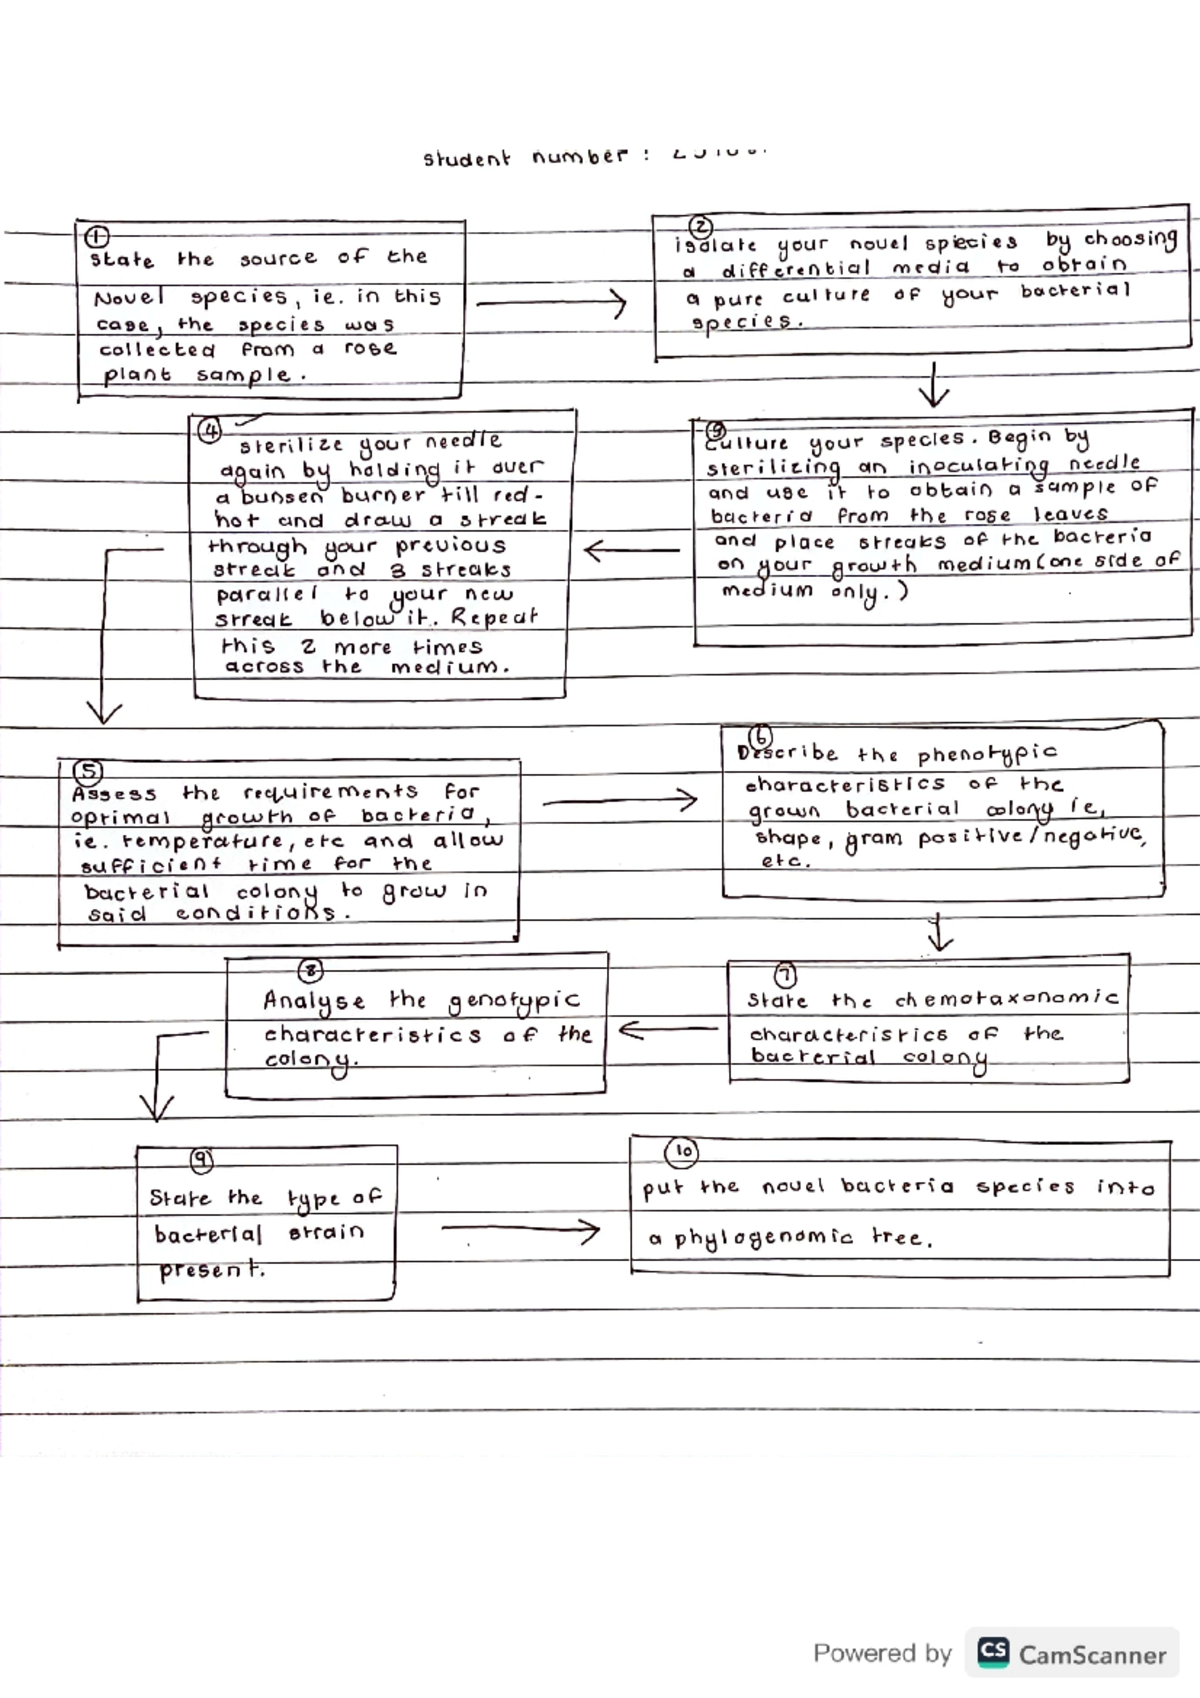 student number :
①
State the source of the
Novel species, ie. in this
case, the species was
collected from a rose
plant sample.
②
isolate your novel species by choosing
a differential media to obtain
a pure culture of your bacterial
species.
③
Culture your species. Begin by
sterilizing an inoculating needle
and use it to obtain a sample of
bacteria from the rose leaves
and place streaks of the bacteria
on your growth medium (one side of
medium only.)
④
sterilize your needle
again by holding it over
a bunsen burner till red-
hot and draw a streak
through your previous
streak and 3 streaks
parallel to your new
streak below it. Repeat
this 2 more times
across the medium.
⑤
Assess the requirements for
optimal growth of bacteria,
ie. temperature, etc and allow
sufficient time for the
bacterial colony to grow in
said conditions.
⑥
Describe the phenotypic
characteristics of the
grown bacterial colony ie,
shape, gram positive/negative,
etc.
⑦
State the chemotaxonomic
characteristics of the
bacterial colony
⑧
Analyse the genotypic
characteristics of the
colony.
⑨
State the type of
bacterial strain
present.
⑩
put the novel bacteria species into
a phylogenomic tree.
Powered by CS CamScanner